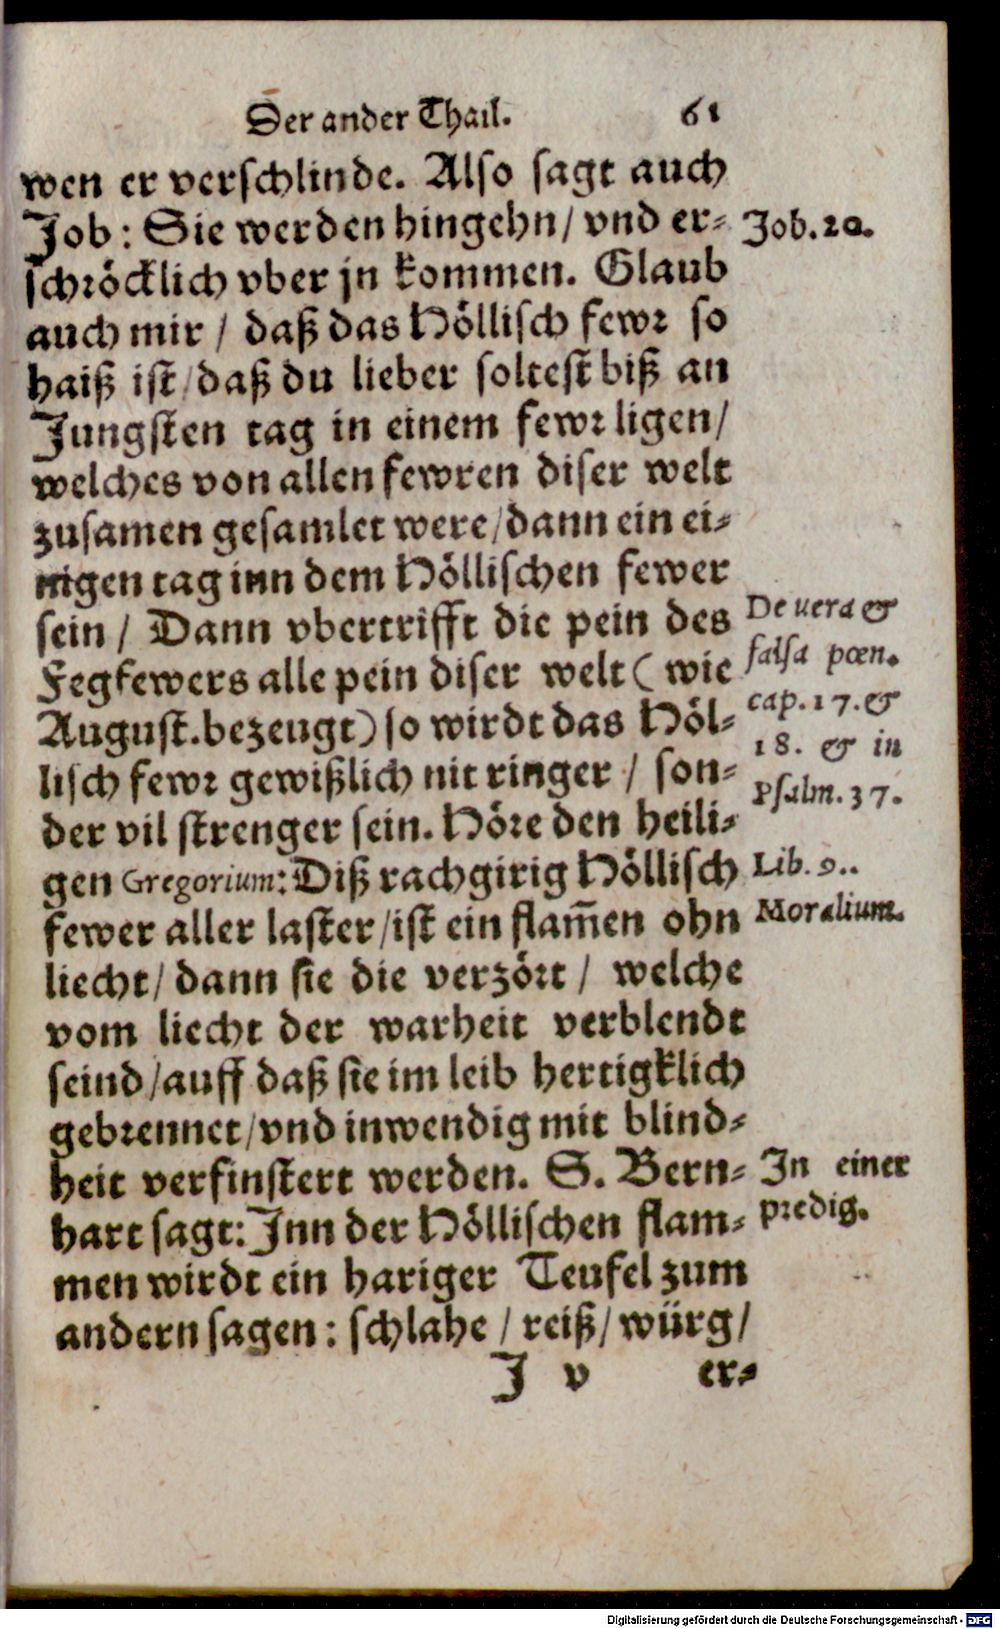 Der ander Thail. 61
wen er verschlinde. Also sagt auch
Job: Sie werden hingehn/ vnd er⸗
schröcklich vber jn kommen. Glaub
auch mir / daß das Höllisch fewr so
haiß ist/ daß du lieber soltest biß an
Jungsten tag in einem fewr ligen/
welches von allen fewren diser welt
zusamen gesamlet were/ dann ein ei⸗
nigen tag inn dem Höllischen fewer
sein / Dann vbertrifft die pein des
Fegfewers alle pein diser welt (wie
August. bezeugt) so wirdt das Höl⸗
lisch fewr gewißlich nit ringer / son⸗
der vil strenger sein. Höre den heili⸗
gen Gregorium: Diß rachgirig Höllisch
fewer aller laster/ ist ein flam̄en ohn
liecht/ dann sie die verzört / welche
vom liecht der warheit verblendt
seind/ auff daß sie im leib hertigklich
gebrennet/ vnd inwendig mit blind⸗
heit verfinstert werden. S. Bern⸗
hart sagt: Inn der Höllischen flam⸗
men wirdt ein hariger Teufel zum
andern sagen: schlahe / reiß/ würg/
J v er⸗
Job. 20.
De uera &
falsa pœn.
cap. 17. &
18. & in
Psalm. 37.
Lib. 9..
Moralium.
In einer
predig.
Digitalisierung gefördert durch die Deutsche Forschungsgemeinschaft - DFG